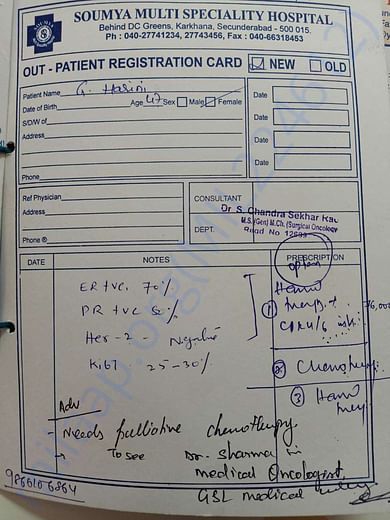 SOUMYA MULTI SPECIALITY HOSPITAL
Behind DC Greens, Karkhana, Secunderabad - 500 015.
Ph : 040-27741234, 27743456, Fax : 040-66318453
OUT - PATIENT REGISTRATION CARD ☑ NEW ☐ OLD
Patient Name G. Hasini
Date of Birth Age 47 Sex Male Female
S/D/W of
Address
Phone
Date
Date
Date
Date
Ref Physician
Address
Phone ®
CONSULTANT
Dr. S. Chandra Sekhar Rao
M.S. (Gen) M.Ch. (Surgical Oncology
DEPT. Regd No
DATE NOTES PRESCRIPTION
option
ER +ve. 70%
PR +ve
Her - 2 - Negative
Ki67 - 25-30%
① Horm
therapy +
CDK4/6 inhi.
② Chemotherapy
③ Horm
Adv
- Needs palliative chemotherapy.
→ To see Dr. Sharma
medical Oncologist,
GSL medical